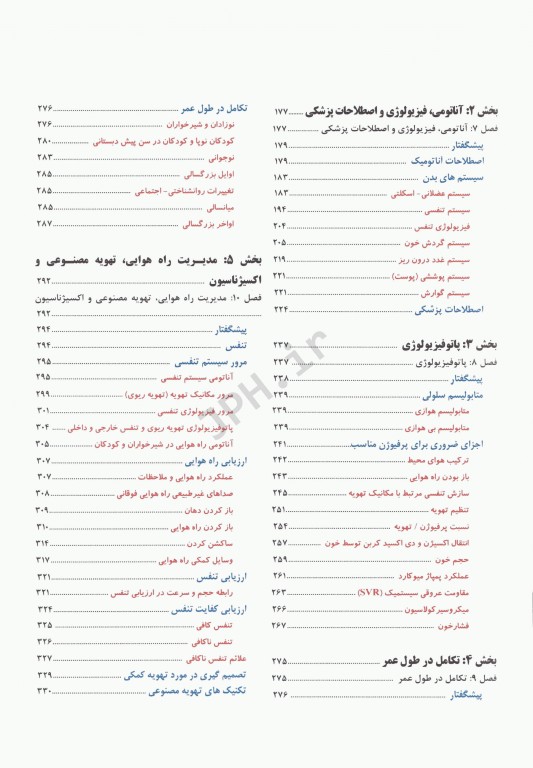 بخش ۲: آناتومی، فیزیولوژی و اصطلاحات پزشکی ........ ۱۷۷
فصل ۷: آناتومی، فیزیولوژی و اصطلاحات پزشکی ............ ۱۷۷
پیشگفتار ........ ۱۷۹
اصطلاحات آناتومیک ........ ۱۷۹
سیستم های بدن ........ ۱۸۳
سیستم عضلانی- اسکلتی ........ ۱۸۳
سیستم تنفسی ........ ۱۹۴
فیزیولوژی تنفس ........ ۲۰۴
سیستم گردش خون ........ ۲۰۵
سیستم غدد درون ریز ........ ۲۱۹
سیستم پوششی (پوست) ........ ۲۲۱
سیستم گوارش ........ ۲۲۱
اصطلاحات پزشکی ........ ۲۲۴
بخش ۳: پاتوفیزیولوژی ........ ۲۳۷
فصل ۸: پاتوفیزیولوژی ........ ۲۳۷
پیشگفتار ........ ۲۳۸
متابولیسم سلولی ........ ۲۳۹
متابولیسم هوازی ........ ۲۳۹
متابولیسم بی هوازی ........ ۲۳۹
اجزای ضروری برای پرفیوژن مناسب ........ ۲۴۱
ترکیب هوای محیط ........ ۲۴۲
باز بودن راه هوایی ........ ۲۴۳
سازش تنفسی مرتبط با مکانیک تهویه ........ ۲۴۵
تنظیم تهویه ........ ۲۵۱
نسبت پرفیوژن / تهویه ........ ۲۵۴
انتقال اکسیژن و دی اکسید کربن توسط خون ........ ۲۵۷
حجم خون ........ ۲۵۹
عملکرد پمپاژ میوکارد ........ ۲۶۱
مقاومت عروقی سیستمیک (SVR) ........ ۲۶۳
میکروسیرکولاسیون ........ ۲۶۶
فشارخون ........ ۲۶۷
بخش ۴: تکامل در طول عمر ........ ۲۷۵
فصل ۹: تکامل در طول عمر ........ ۲۷۵
پیشگفتار ........ ۲۷۶
تکامل در طول عمر ........ ۲۷۶
نوزادان و شیرخواران ........ ۲۷۶
کودکان نوپا و کودکان در سن پیش دبستانی ........ ۲۸۰
نوجوانی ........ ۲۸۳
اوایل بزرگسالی ........ ۲۸۵
تغییرات روانشناختی- اجتماعی ........ ۲۸۵
میانسالی ........ ۲۸۵
اواخر بزرگسالی ........ ۲۸۷
بخش ۵: مدیریت راه هوایی، تهویه مصنوعی و
اکسیژناسیون ........ ۲۹۲
فصل ۱۰: مدیریت راه هوایی، تهویه مصنوعی و اکسیژناسیون
........ ۲۹۲
پیشگفتار ........ ۲۹۴
تنفس ........ ۲۹۴
مرور سیستم تنفسی ........ ۲۹۵
آناتومی سیستم تنفسی ........ ۲۹۵
مرور مکانیک تهویه (تهویه ریوی) ........ ۲۹۹
مرور فیزیولوژی تنفسی ........ ۳۰۱
پاتوفیزیولوژی تهویه ریوی و تنفس خارجی و داخلی ...... ۳۰۴
آناتومی راه هوایی در شیرخواران و کودکان ........ ۳۰۵
ارزیابی راه هوایی ........ ۳۰۷
عملکرد راه هوایی و ملاحظات ........ ۳۰۷
صداهای غیرطبیعی راه هوایی فوقانی ........ ۳۰۸
باز کردن دهان ........ ۳۰۹
باز کردن راه هوایی ........ ۳۱۰
ساکشن کردن ........ ۳۱۴
وسایل کمکی راه هوایی ........ ۳۱۷
ارزیابی تنفس ........ ۳۲۱
رابطه حجم و سرعت در ارزیابی تنفس ........ ۳۲۱
ارزیابی کفایت تنفس ........ ۳۲۴
تنفس کافی ........ ۳۲۵
تنفس ناکافی ........ ۳۲۶
علائم تنفس ناکافی ........ ۳۲۷
تصمیم گیری در مورد تهویه کمکی ........ ۳۲۹
تکنیک های تهویه مصنوعی ........ ۳۳۰
JPH.ir